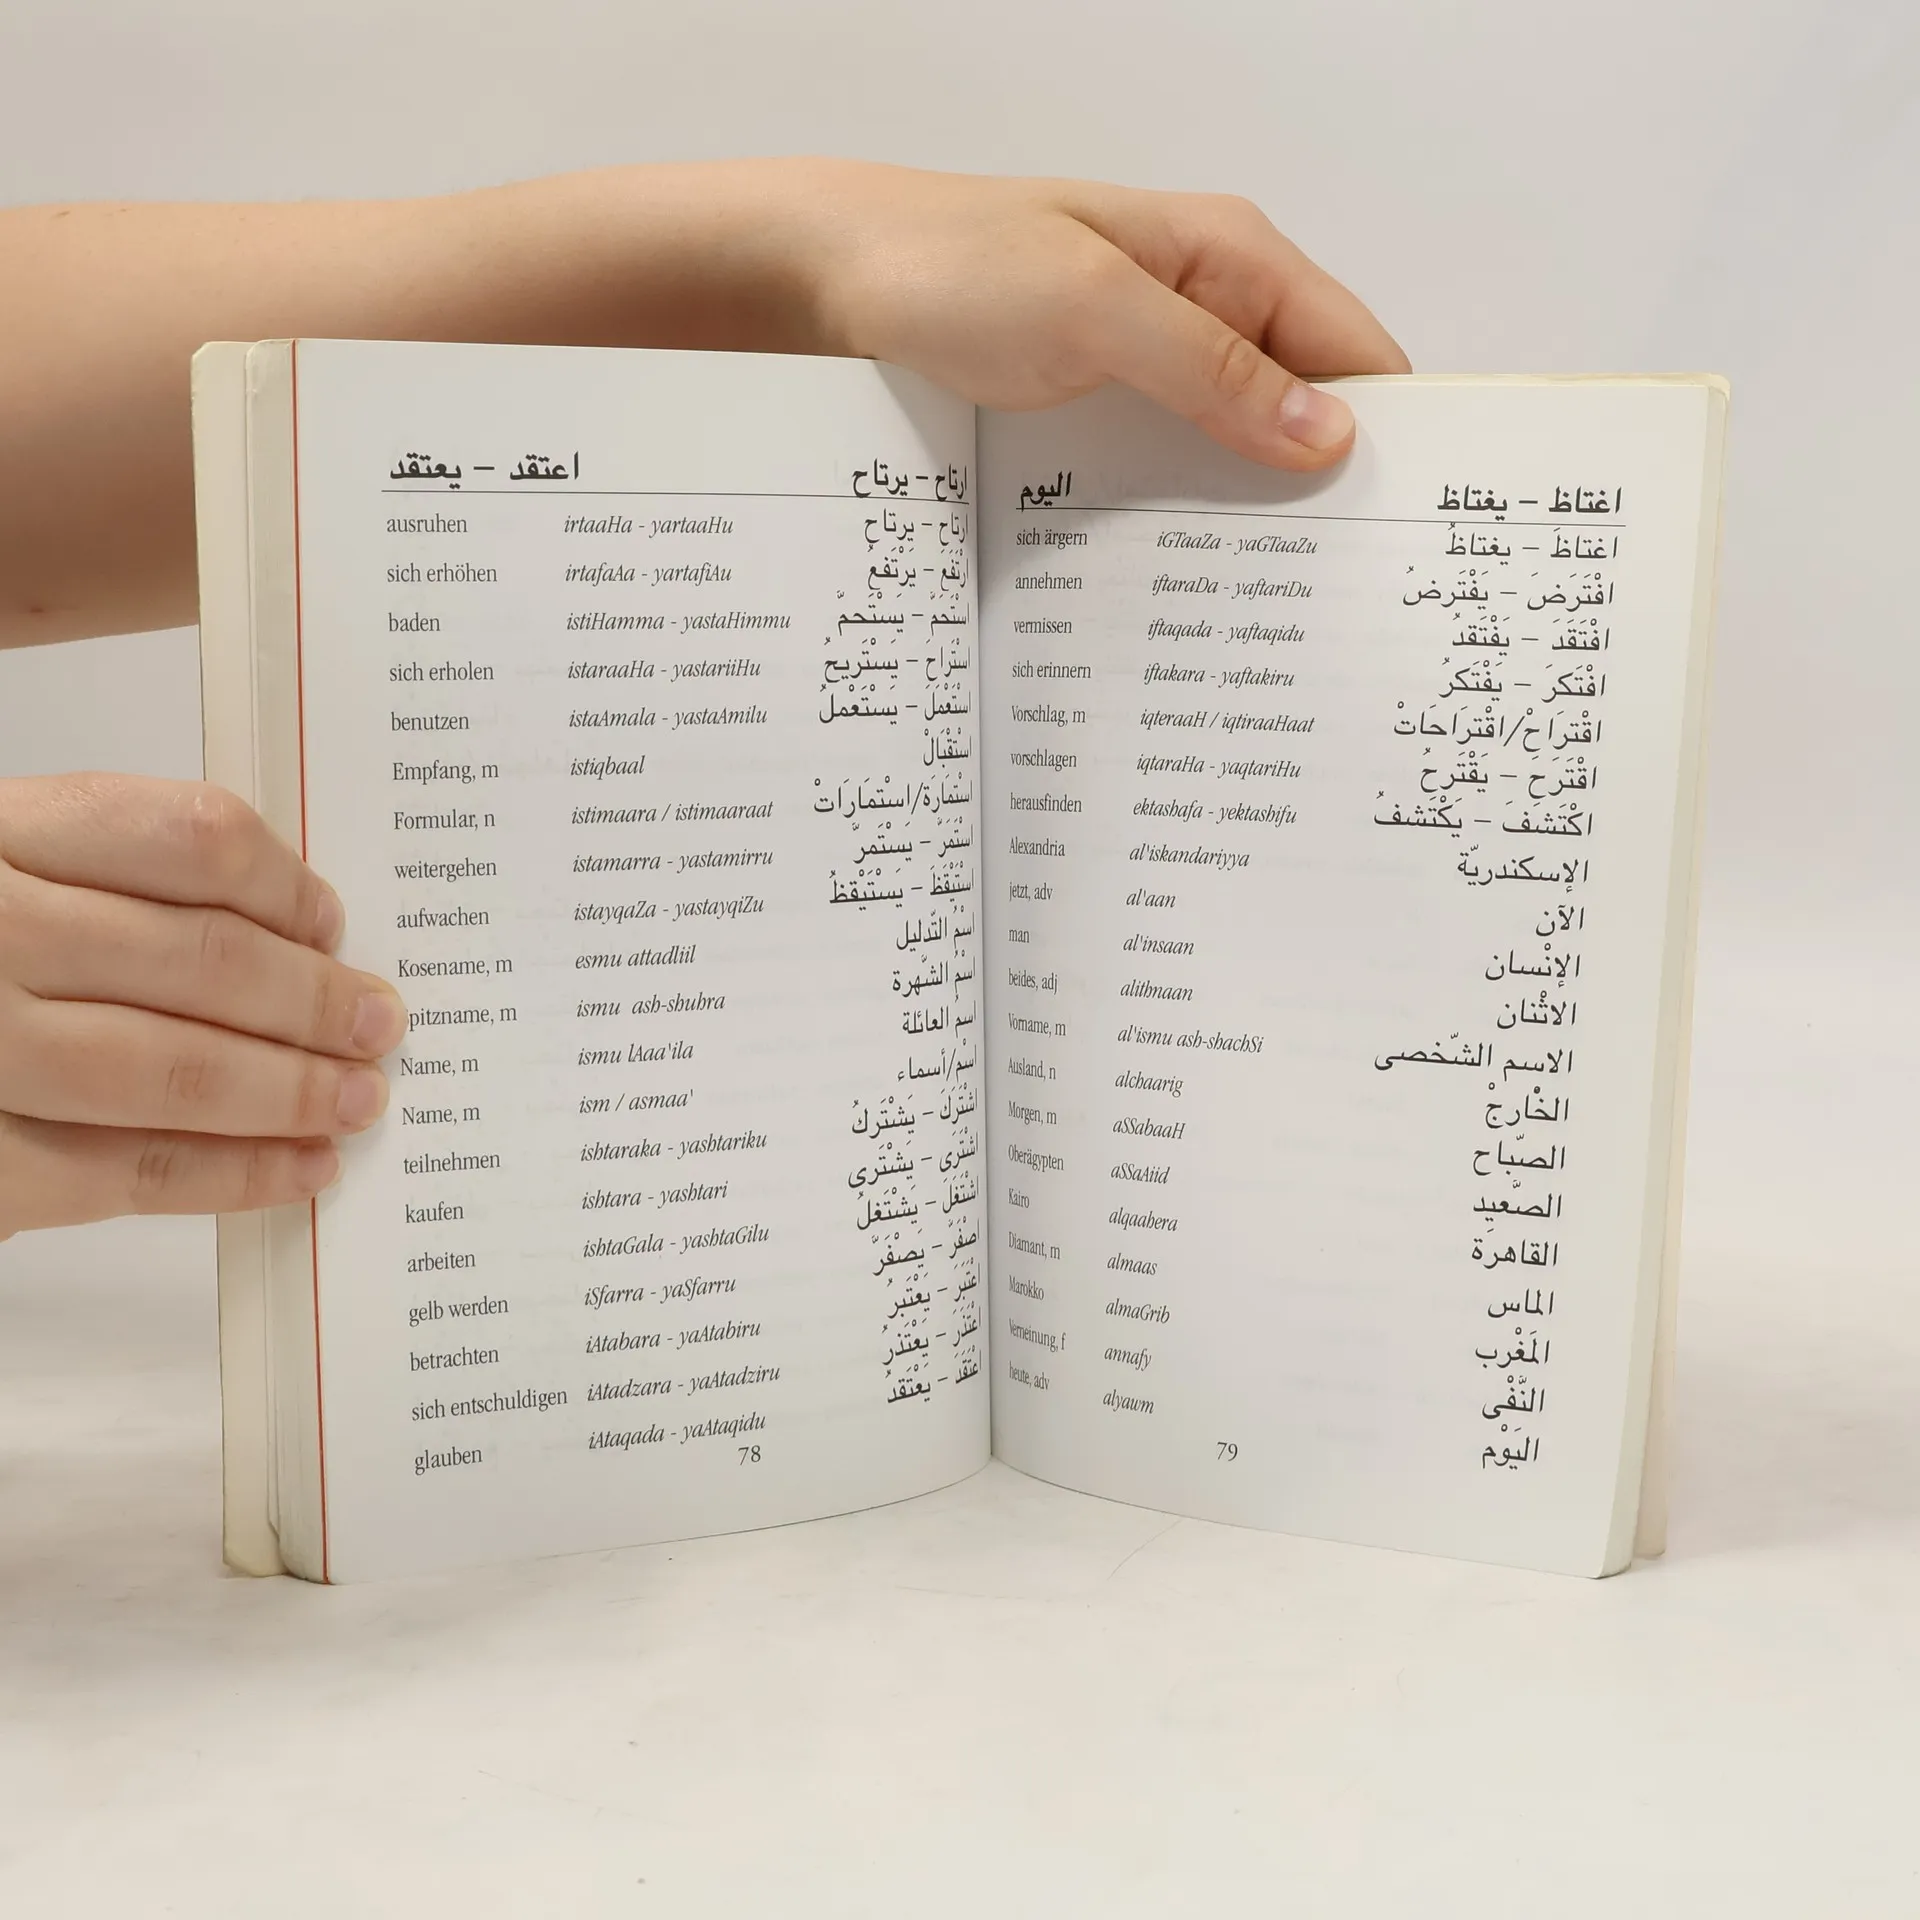 اعتقد – يعتقد ارتاح – يرتاح
ausruhen irtaaHa - yartaaHu ارتاح – يرتاح
sich erhöhen irtafaAa - yartafiAu ارْتَفَعَ – يَرْتَفعُ
baden istiHamma - yastaHimmu اسْتَحَمَّ – يَسْتَحمَّ
sich erholen istaraaHa - yastariiHu اسْتَراحَ – يَسْتَريحُ
benutzen istaAmala - yastaAmilu اسْتَعْمَلَ – يَسْتَعْملُ
Empfang, m istiqbaal اسْتقْبَالْ
Formular, n istimaara / istimaaraat اسْتمَارَة/اسْتمَارَاتْ
weitergehen istamarra - yastamirru اسْتَمَرَّ – يَسْتَمرَّ
aufwachen istayqaZa - yastayqiZu اسْتَيْقَظَ – يَسْتَيْقظُ
Kosename, m esmu attadliil اسْمُ التَّدليل
pitzname, m ismu ash-shuhra اسْمُ الشَّهرة
Name, m ismu lAaa'ila اسمُ العائلة
Name, m ism / asmaa' اسْم/أسماء
teilnehmen ishtaraka - yashtariku اشْتَرَكَ – يَشْتَركُ
kaufen ishtara - yashtari اشْتَرَى – يَشْتَرى
arbeiten ishtaGala - yashtaGilu اشْتَغَلَ – يَشْتَغلُ
gelb werden iSfarra - yaSfarru اصْفَرَّ – يَصْفَرَّ
betrachten iAtabara - yaAtabiru اعْتَبَرَ – يَعْتَبرُ
sich entschuldigen iAtadzara - yaAtadziru اعْتَذَرَ – يَعْتَذرُ
glauben iAtaqada - yaAtaqidu اعْتَقَدَ – يَعْتَقدُ
78
اليوم اغتاظ – يغتاظ
sich ärgern iGTaaZa - yaGTaaZu اغتاظَ – يغتاظُ
annehmen iftaraDa - yaftariDu افْتَرَضَ – يَفْتَرضُ
vermissen iftaqada - yaftaqidu افْتَقَدَ – يَفْتَقدُ
sich erinnern iftakara - yaftakiru افْتَكَرَ – يَفْتَكرُ
Vorschlag, m iqteraaH / iqtiraaHaat اقْترَاحْ/اقْترَاحَاتْ
vorschlagen iqtaraHa - yaqtariHu اقْتَرحَ – يَقْتَرحُ
herausfinden ektashafa - yektashifu اكْتَشَفَ – يَكْتَشفُ
Alexandria al'iskandariyya الإسكندريّة
jetzt, adv al'aan الآن
man al'insaan الإنْسان
beides, adj alithnaan الاثْنان
Vorname, m al'ismu ash-shachSi الاسم الشّخصى
Ausland, n alchaarig الخْارجْ
Morgen, m aSSabaaH الصّباح
Oberägypten aSSaAiid الصَّعيد
Kairo alqaahera القاهرَة
Diamant, m almaas الماس
Marokko almaGrib المَغْرب
Verneinung, f annafy النَّفْى
heute, adv alyawm اليَوْم
79